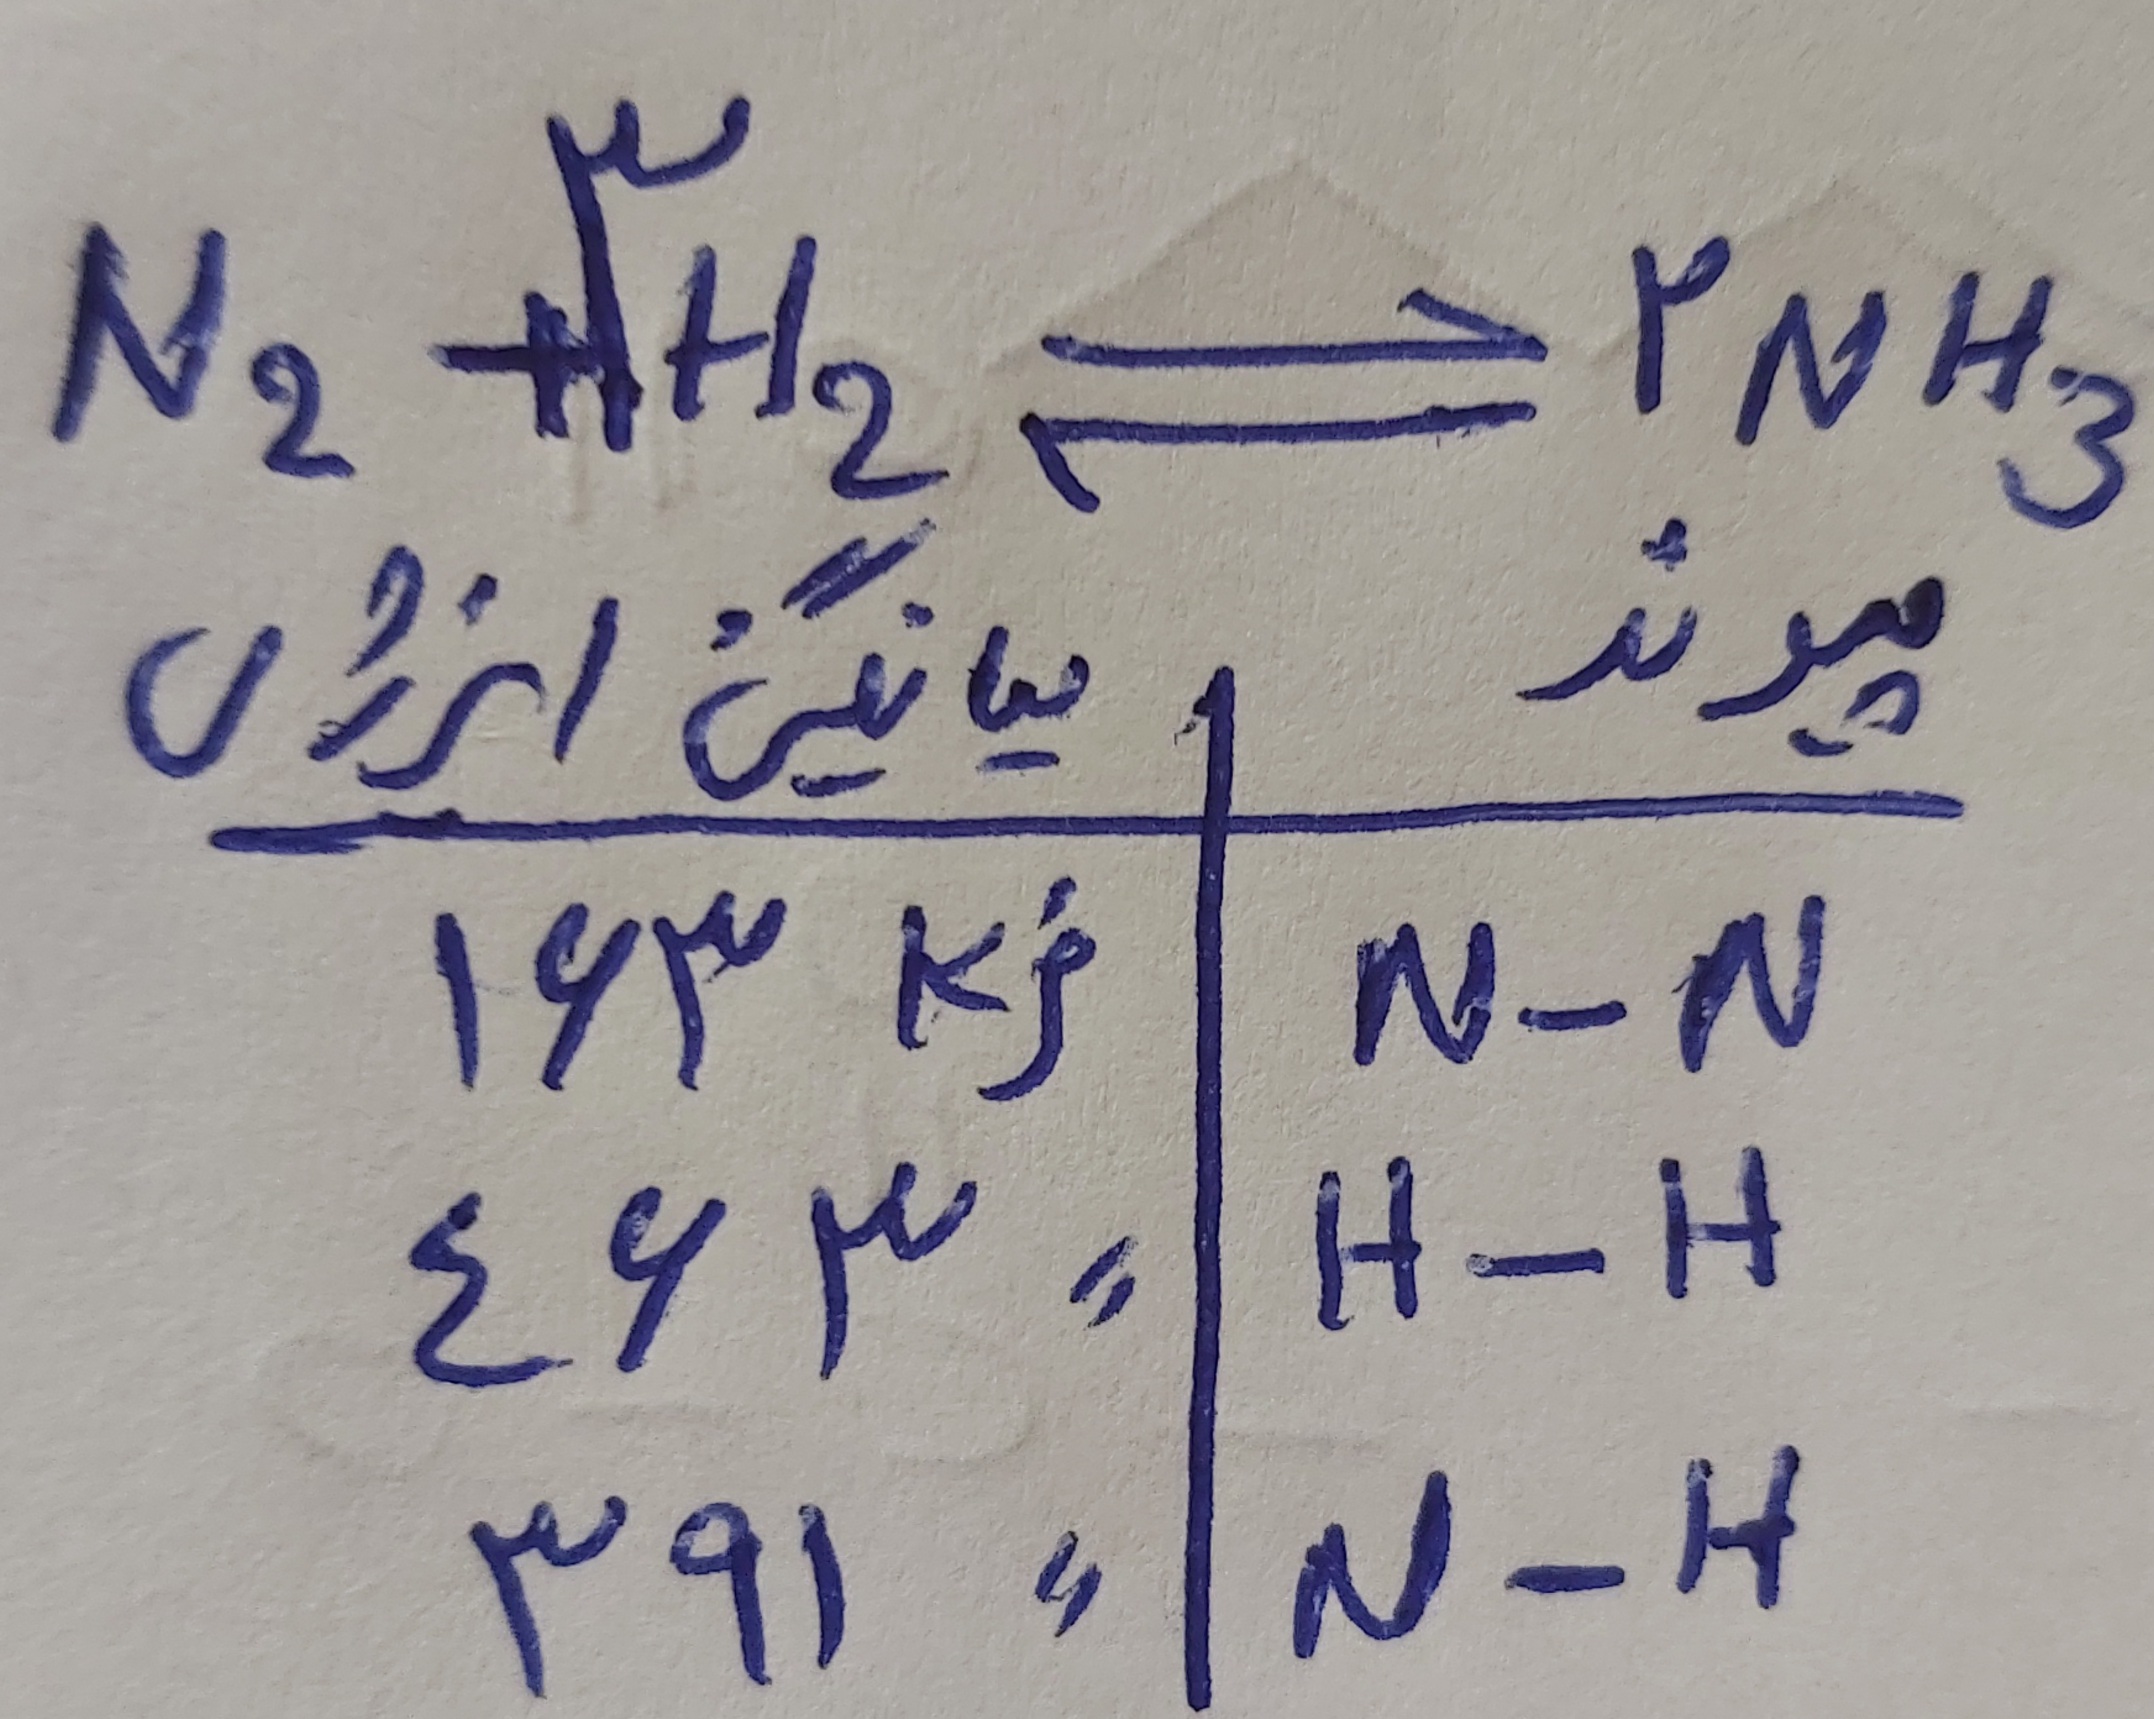 N2 + ۳H2 ⇌ ۲NH3
پیوند میانگین انرژی
N-N ۱۶۳ Kj
H-H ٤۶۳ "
N-H ۳۹۱ "